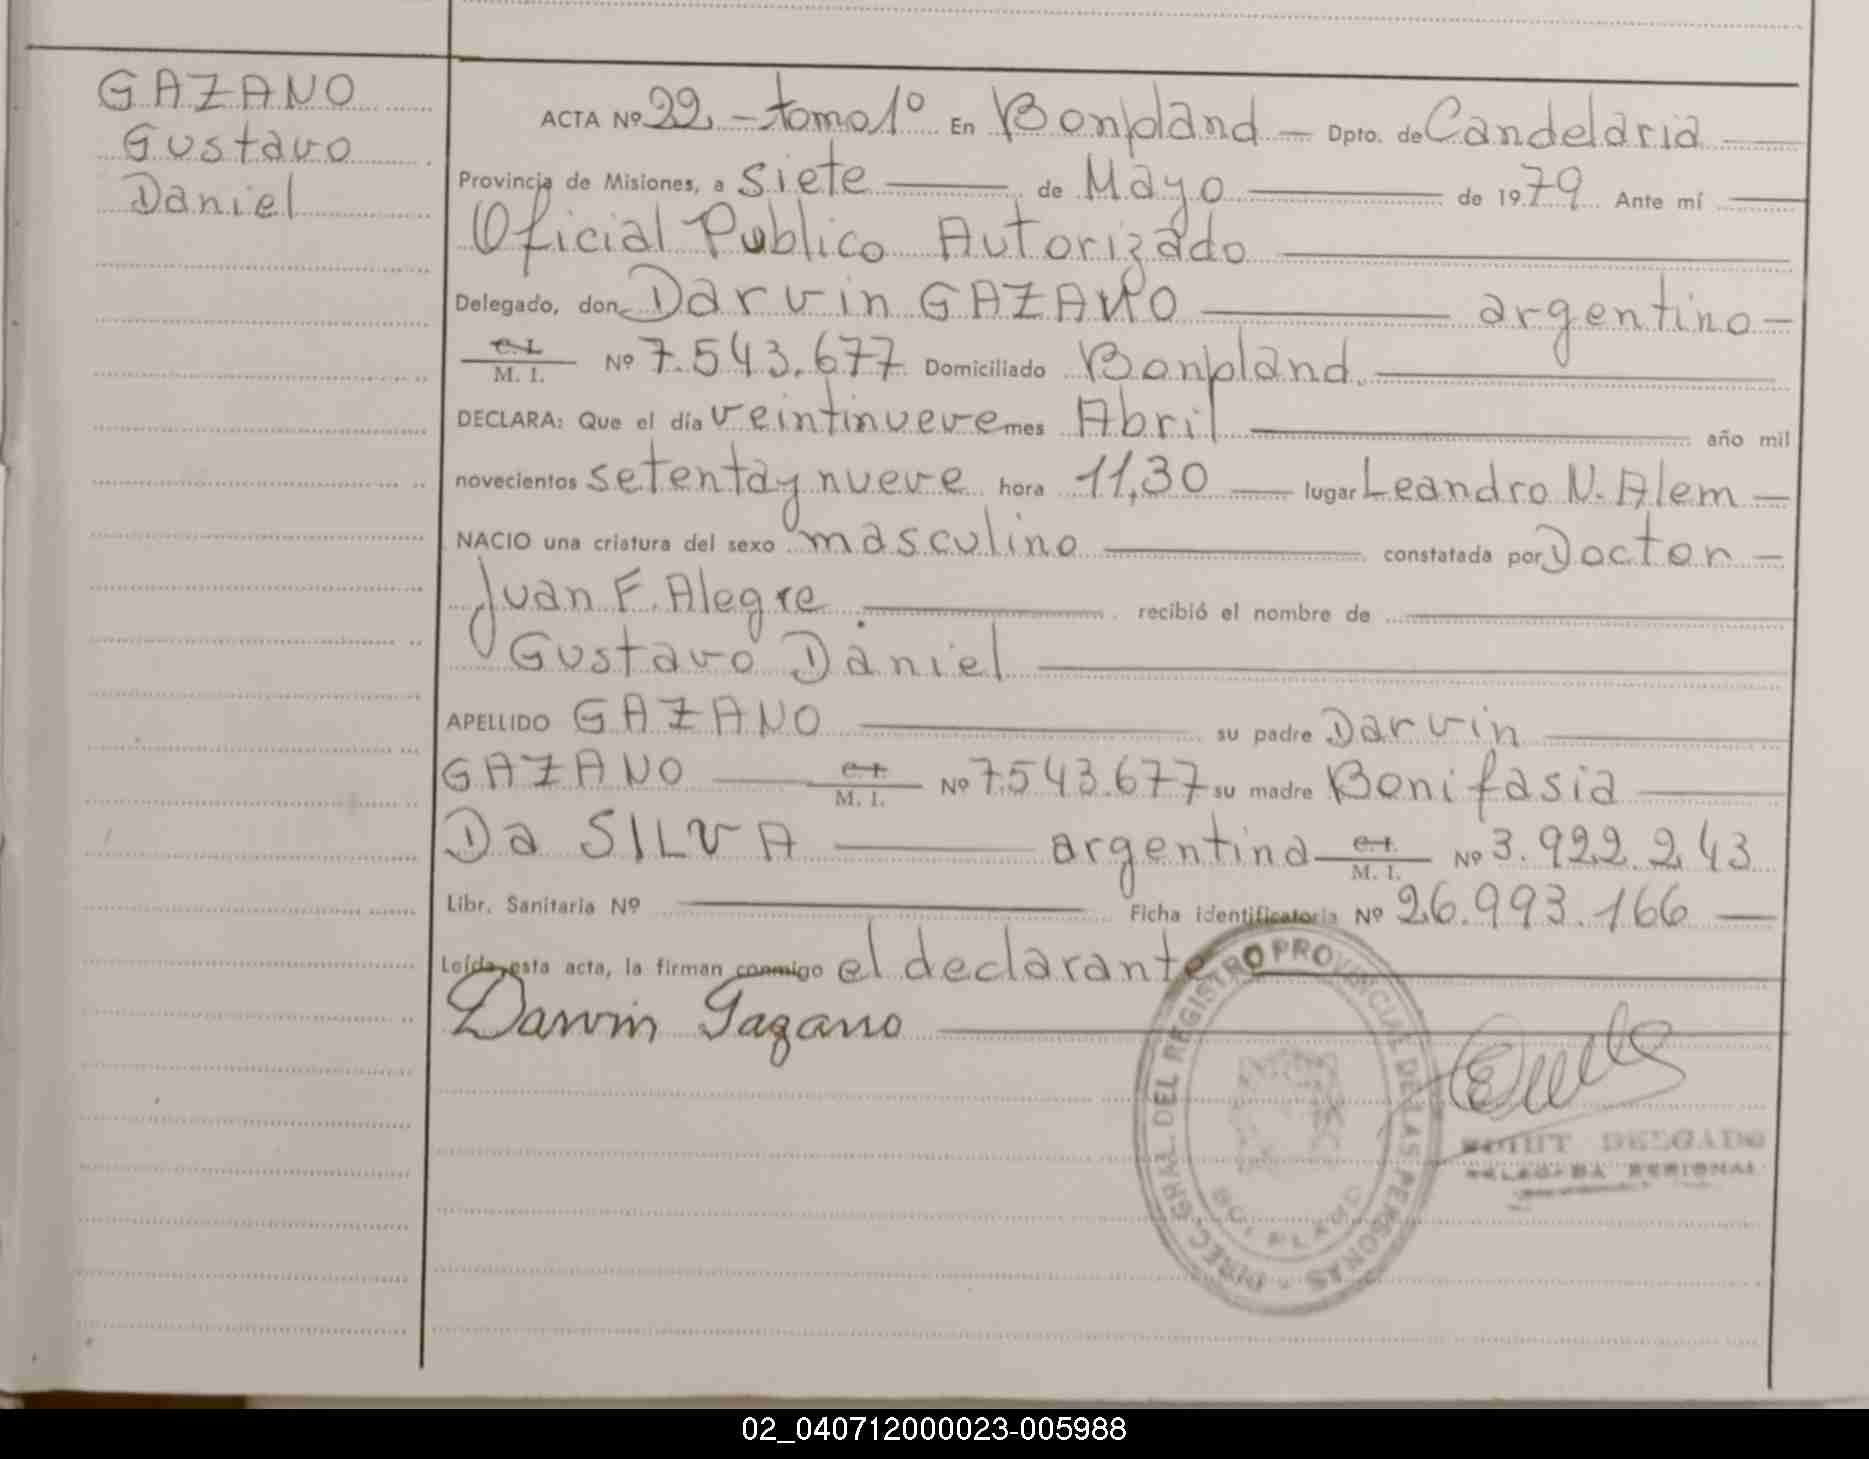 GAZANO
Gustavo
Daniel
ACTA Nº 22 - tomo 1º En Bonpland - Dpto. de Candelaria
Provincia de Misiones, a siete de Mayo de 1979 Ante mí
Oficial Publico Autorizado
Delegado, don Darvin GAZANO argentino -
C.I. M. I. Nº 7.543.677 Domiciliado Bonpland.
DECLARA: Que el día veintinueve mes Abril año mil
novecientos setenta y nueve hora 11,30 lugar Leandro N. Alem -
NACIO una criatura del sexo masculino constatada por Doctor -
Juan F. Alegre recibió el nombre de
Gustavo Daniel
APELLIDO GAZANO su padre Darvin
GAZANO C.I. M. I. Nº 7.543.677 su madre Bonifasia
Da SILVA argentina C.I. M. I. Nº 3.922.243
Libr. Sanitaria Nº Ficha identificatoria Nº 26.993.166
Leída esta acta, la firman conmigo el declarante
Darvin Gazano
DIREC. GRAL. DEL REGISTRO PROVINCIAL DE LAS PERSONAS - BONPLAND
DELGADO
02_040712000023-005988